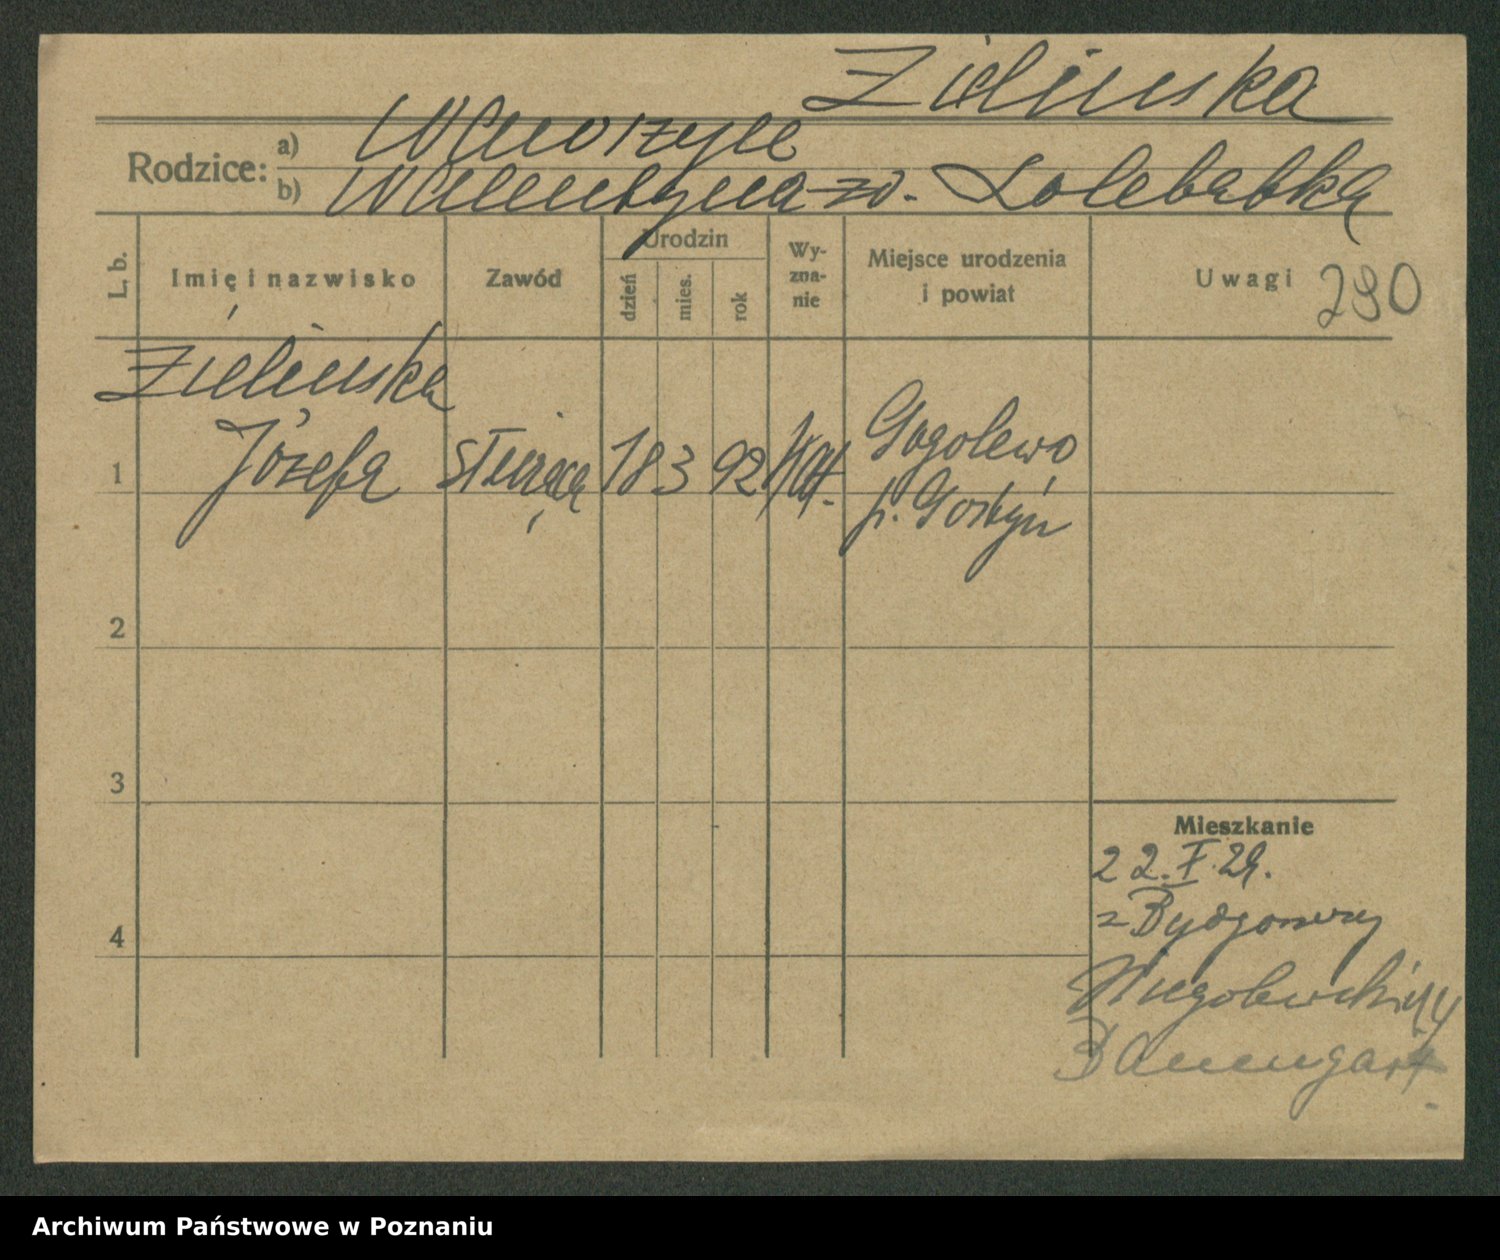 Zielińska
Rodzice: a) Wawrzyn
b) Walentyna zd.
L. b.
Imię i nazwisko
Zawód
Urodzin
dzień
mies.
rok
Wy-
zna-
nie
Miejsce urodzenia
i powiat
Uwagi
290
Zielińska
1 Józefa służąca 18 3 92 kat. Gogolewo
p. Gostyń
2
3
4
Mieszkanie
22.X.29.
z Bydgoszczy
Baumgart
Archiwum Państwowe w Poznaniu